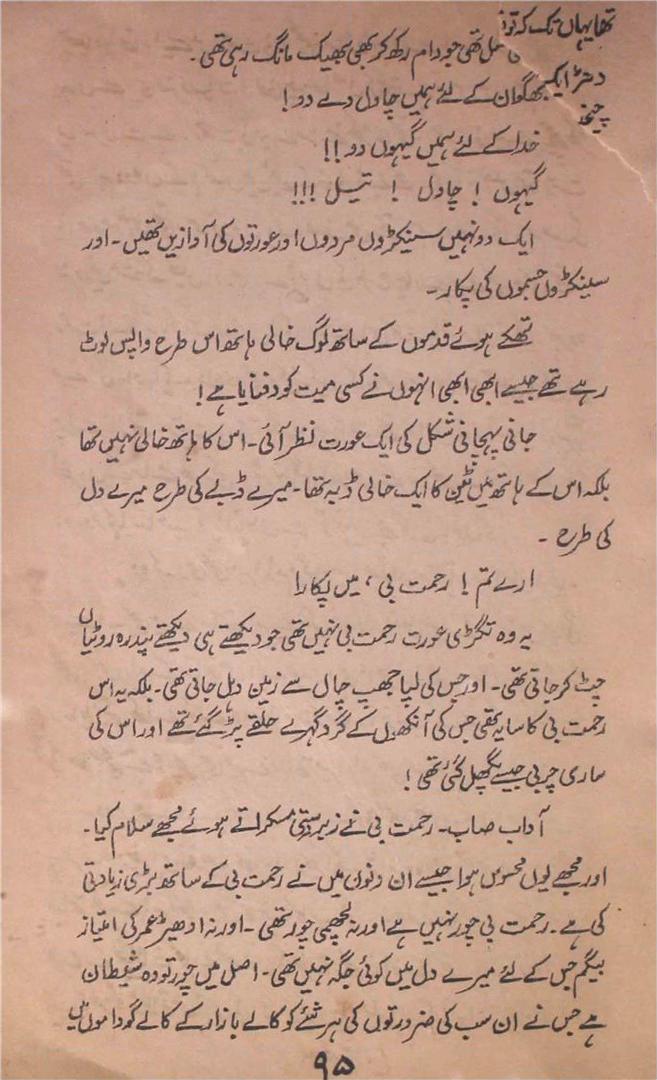 تھا یہاں تک کہ تو
تھی جو دام رکھ کر بھی بھیک مانگ رہی تھی۔
دھڑ ایک
بھگوان کے لئے ہمیں چاول دے دو !
چیخ
خدا کے لئے ہمیں گیہوں دو !!
گیہوں ! چاول ! تیل !!!
ایک دو نہیں سینکڑوں مردوں اور عورتوں کی آوازیں تھیں۔ اور
سینکڑوں جسموں کی پکار۔
تھکے ہوئے قدموں کے ساتھ لوگ خالی ہاتھ اس طرح واپس لوٹ
رہے تھے جیسے ابھی ابھی انہوں نے کسی میت کو دفنایا ہے !
جانی پہچانی شکل کی ایک عورت نظر آئی۔ اس کا ہاتھ خالی نہیں تھا
بلکہ اس کے ہاتھ میں ٹین کا ایک خالی ڈبہ تھا۔ میرے ڈبے کی طرح میرے دل
کی طرح ۔
ارے تم ! رحمت بی ، میں پکارا
یہ وہ تگڑی عورت رحمت بی نہیں تھی جو دیکھتے ہی دیکھتے پندرہ روٹیاں
چٹ کر جاتی تھی۔ اور جس کی لپا جھپ چال سے زمین دہل جاتی تھی۔ بلکہ یہ اس
رحمت بی کا سایہ تھی جس کی آنکھوں کے گرد گہرے حلقے پڑ گئے تھے اور اس کی
ساری چربی جیسے پگھل گئی تھی !
آداب صاب۔ رحمت بی نے زبردستی مسکراتے ہوئے مجھے سلام کیا۔
اور مجھے یوں محسوس ہوا جیسے ان دنوں میں نے رحمت بی کے ساتھ بڑی زیادتی
کی ہے۔ رحمت بی چور نہیں ہے اور نہ لچھمی چور تھی۔ اور نہ ادھیڑ عمر کی امتیاز
بیگم جس کے لئے میرے دل میں کوئی جگہ نہیں تھی۔ اصل میں چور تو وہ شیطان
ہے جس نے ان سب کی ضرورتوں کی ہر شئے کو کالے بازار کے کالے گوداموں میں
۹۵